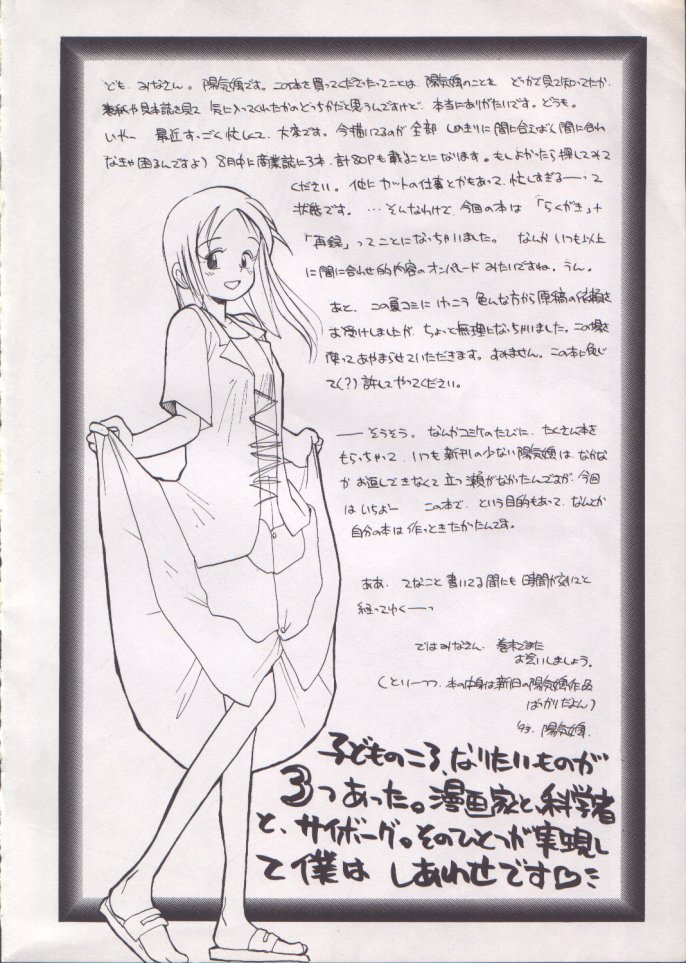 ども、みなさん。陽気婢です。この本を買ってくださったってことは、陽気婢のことを どっかで見て知ってたか、
表紙や見本誌を見て 気に入ってくれたかのどっちかだと思うんですけど、本当にありがたいです。どうも。
いやー 最近すっごく忙しくて、大変です。今描いてるのが全部 しめきりに間に合えばく間に合わ
なきゃ困るんですよ) 8月中に商業誌に3本、計80Pも載ることになります。もしよかったら探してみて
ください。他にカットの仕事とかもあって、忙しすぎるーって
状態です。…そんなわけで、今回の本は「らくがき」+
「再録」ってことになっちゃいました。なんか いつも以上
に間に合わせ的内容のオンパレードみたいですね。うん。
あと、この夏コミに けっこう色んな方から原稿の依頼を
お受けしましたが、ちょっと無理になっちゃいました。この場を
借りてあやまらせていただきます。すみません。この本に免じ
て(?)許してやってください。
——そうそう。なんかコミケのたびに、たくさん本を
もらっちゃって、いつも新刊の少ない陽気婢は、なかな
かお返しできなくて立つ瀬がなかったんですが、今回
はいちおー この本で、という目的もあって、なんとか
自分の本は作っときたかったんです。
ああ、てなこと書いてる間にも時間が刻々と
経ってゆくーっ
ではみなさん、巻末でまた
お会いしましょう。
(といーつつ、本の中身は新旧の陽気婢作品
ばっかりだよん)
'93. 陽気婢.
子どものころ、なりたいものが
3つあった。漫画家と、科学者
と、サイボーグ。そのひとつが実現し
て僕は しあわせです♡